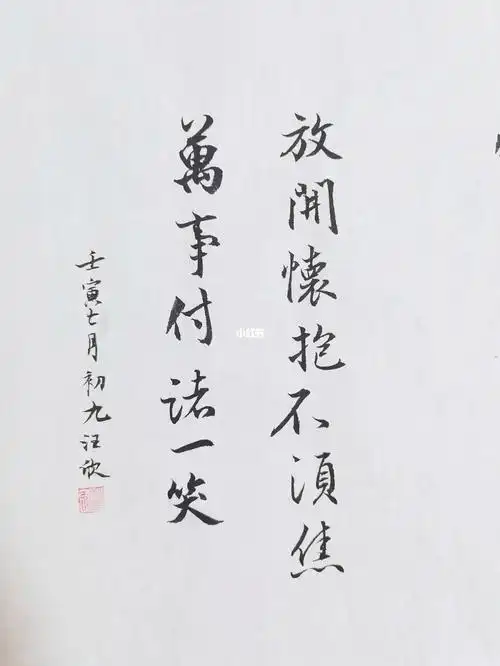 放開懷抱不須焦
萬事付諸一笑
壬寅七月初九汪欣
小红书